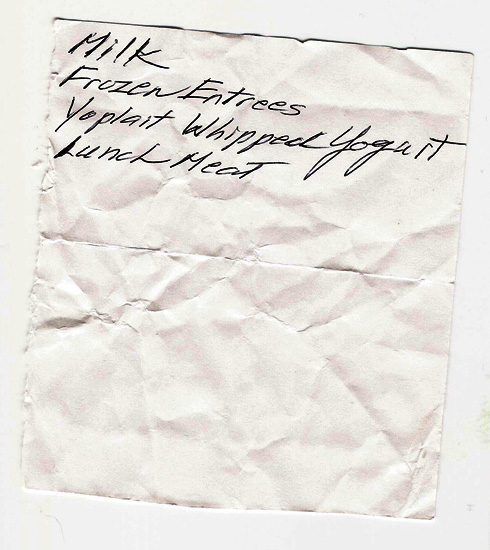 Milk
Frozen Entrees
Yoplait Whipped Yogurt
Lunch Meat